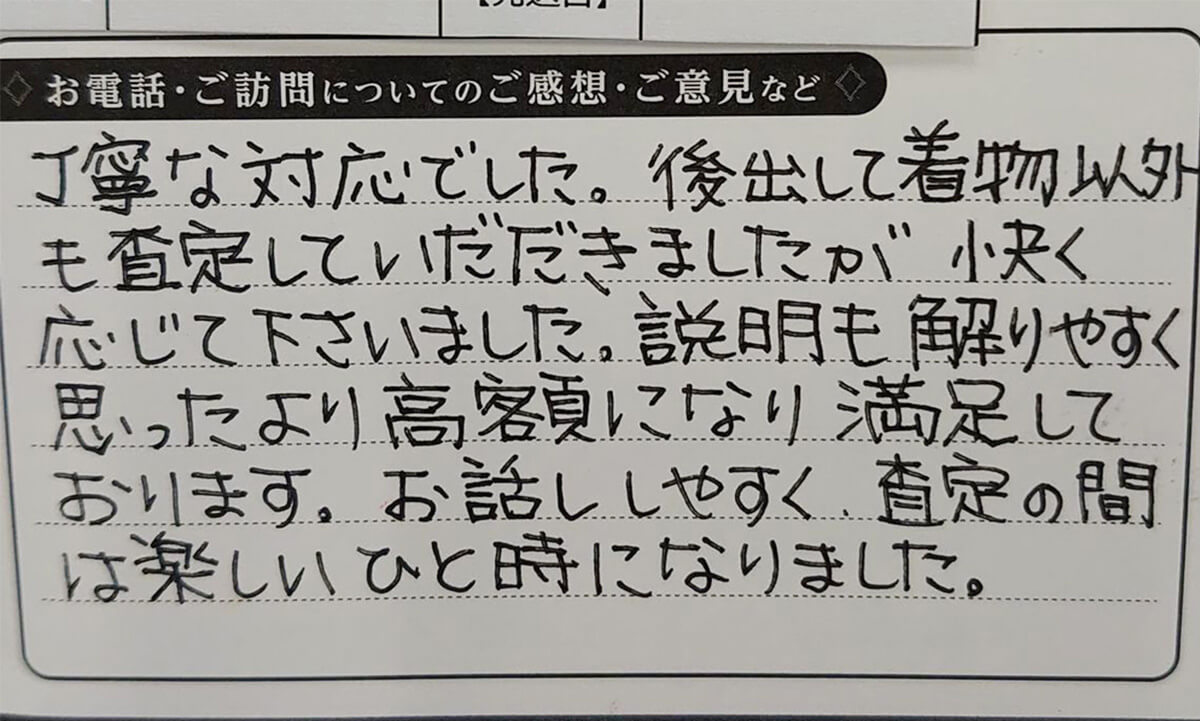 お電話・ご訪問についてのご感想・ご意見など
丁寧な対応でした。後出して着物以外
も査定していだだきましたが 快く
応じて下さいました。説明も解りやすく
思ったより高額になり 満足して
おります。お話ししやすく、査定の間
は楽しいひと時になりました。